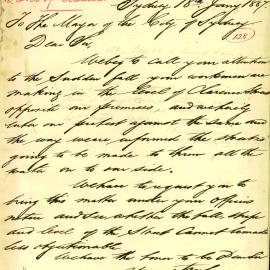 Sydney 18th Jany 1887
To The Mayor of the City of Sydney
128
Dear Sir,
We beg to call your attention
to the Sudden fall your workmen are
making in the Level of Clarence Street
opposite our premises, and we hereby
enter our protest against the same and
the way we were informed the Street is
going to be made to throw all the
water on to our side.
We have to request you to
bring this matter under your Officers
notice and see whether the fall, slope
and level of the Street Cannot be made
less objectionable.
We have the honor to be Dear Sir